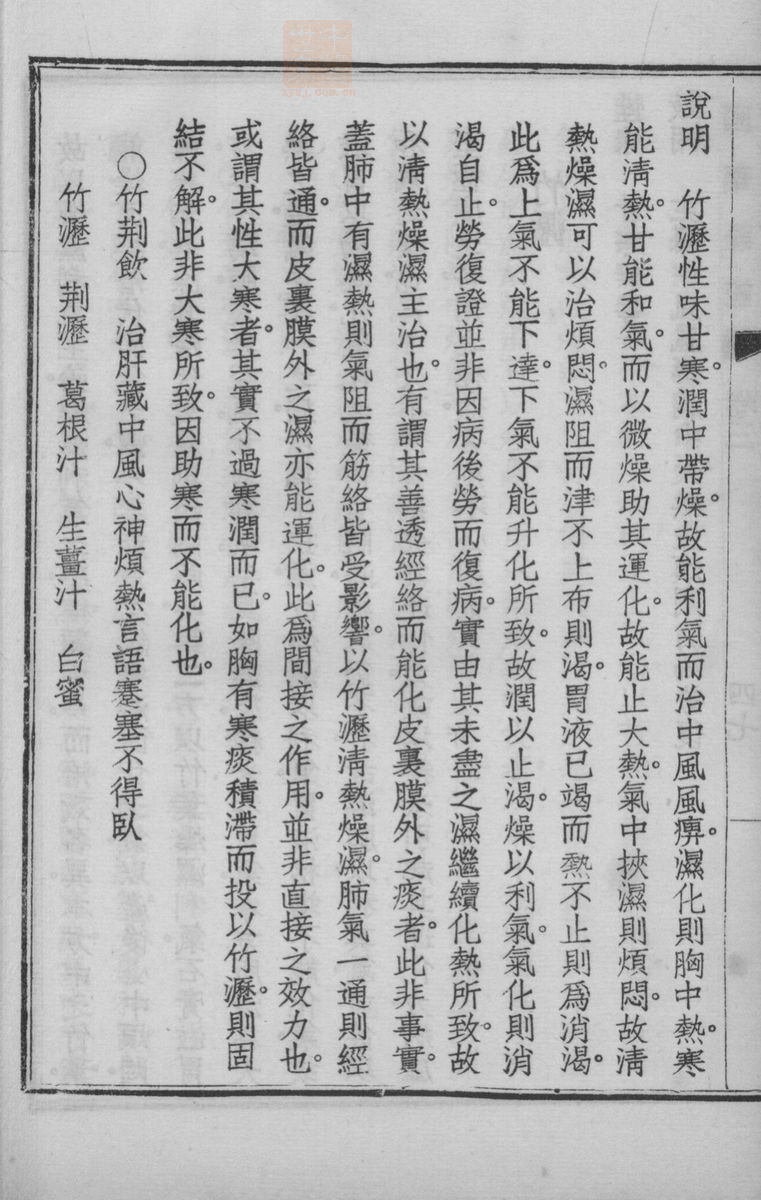 說明　竹瀝性味甘寒。潤中帶燥。故能利氣而治中風風痹。濕化則胸中熱。寒
能淸熱。甘能和氣。而以微燥助其運化。故能止大熱。氣中挾濕則煩悶。故淸
熱燥濕可以治煩悶。濕阻而津不上布則渴。胃液已竭而熱不止則爲消渴。
此爲上氣不能下達。下氣不能升化所致。故潤以止渴。燥以利氣。氣化則消
渴自止。勞復證並非因病後勞而復病。實由其未盡之濕繼續化熱所致。故
以淸熱燥濕主治也。有謂其善透經絡而能化皮裏膜外之痰者。此非事實。
蓋肺中有濕熱則氣阻而筋絡皆受影響。以竹瀝淸熱燥濕。肺氣一通則經
絡皆通。而皮裏膜外之濕亦能運化。此爲間接之作用。並非直接之效力也。
或謂其性大寒者。其實不過寒潤而已。如胸有寒痰積滯而投以竹瀝。則固
結不解。此非大寒所致。因助寒而不能化也。
○竹荆飲　治肝藏中風心神煩熱言語蹇塞不得臥
竹瀝　荆瀝　葛根汁　生薑汁　白蜜